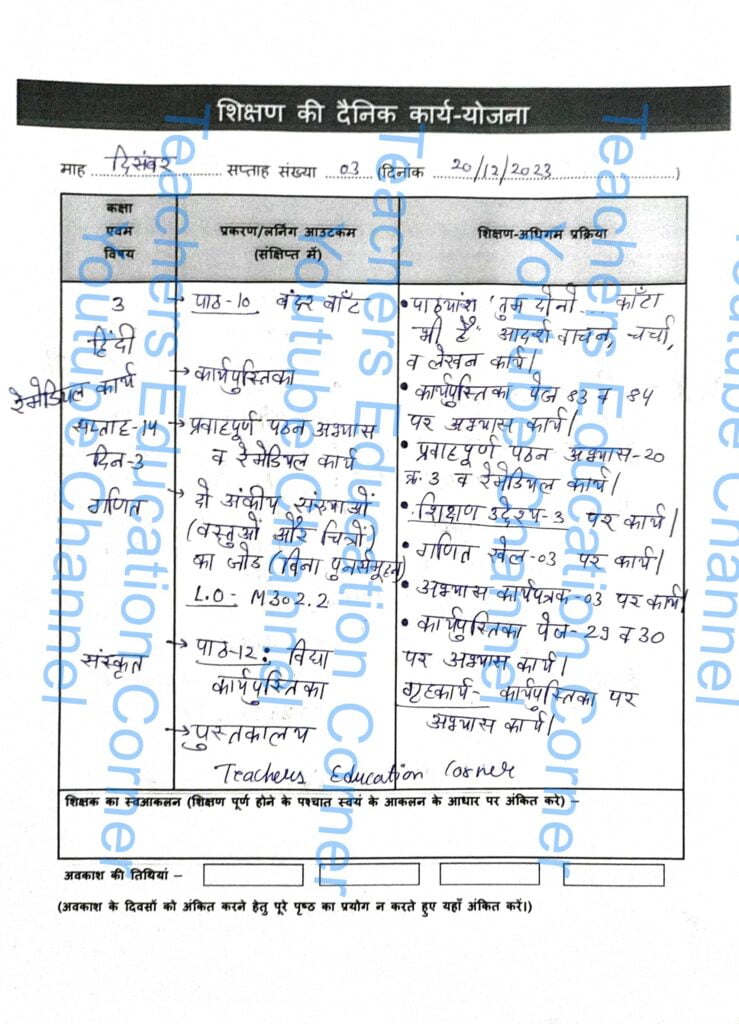 शिक्षण की दैनिक कार्य-योजना
माह दिसंबर सप्ताह संख्या 03 (दिनांक 20/12/2023)
कक्षा
एवम
विषय
प्रकरण/लर्निंग आउटकम
(संक्षिप्त में)
शिक्षण-अधिगम प्रक्रिया
3
हिंदी
रेमेडियल कार्य
सप्ताह-14
दिन-3
गणित
संस्कृत
→ पाठ-10 बंदर बाँट
→ कार्यपुस्तिका
→ प्रवाहपूर्ण पठन अभ्यास
व रेमेडियल कार्य
→ दो अंकीय संख्याओं
(वस्तुओं और चित्रों)
का जोड (बिना पुनर्समूहन)
L.O- M302.2
→ पाठ-12: विद्या
कार्यपुस्तिका
→ पुस्तकालय
• पाठ्यांश 'तुम दोनो... काँटा
भी है" आदर्श वाचन, चर्चा,
व लेखन कार्य।
• कार्यपुस्तिका पेज 83 व 84
पर अभ्यास कार्य।
• प्रवाहपूर्ण पठन अभ्यास-20
क्र. 3 व रेमेडियल कार्य।
• शिक्षण उद्देश्य-3 पर कार्य।
• गणित खेल-03 पर कार्य।
• अभ्यास कार्यपत्रक-03 पर कार्य।
• कार्यपुस्तिका पेज-29 व 30
पर अभ्यास कार्य।
गृहकार्य- कार्यपुस्तिका पर
अभ्यास कार्य।
Teachers Education Corner
शिक्षक का स्वआकलन (शिक्षण पूर्ण होने के पश्चात स्वयं के आकलन के आधार पर अंकित करे) –
अवकाश की तिथियां –
(अवकाश के दिवसों को अंकित करने हेतु पूरे पृष्ठ का प्रयोग न करते हुए यहाँ अंकित करें।)
Teachers Education Corner
Youtube Channel
Teachers Education Corner
Youtube Channel
Teachers Education Corner
Youtube Channel